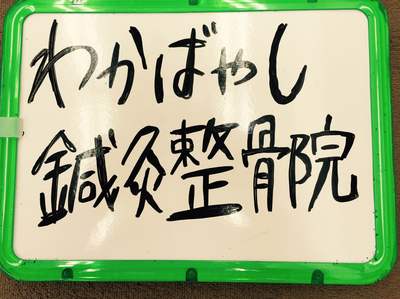 わかばやし
鍼灸整骨院